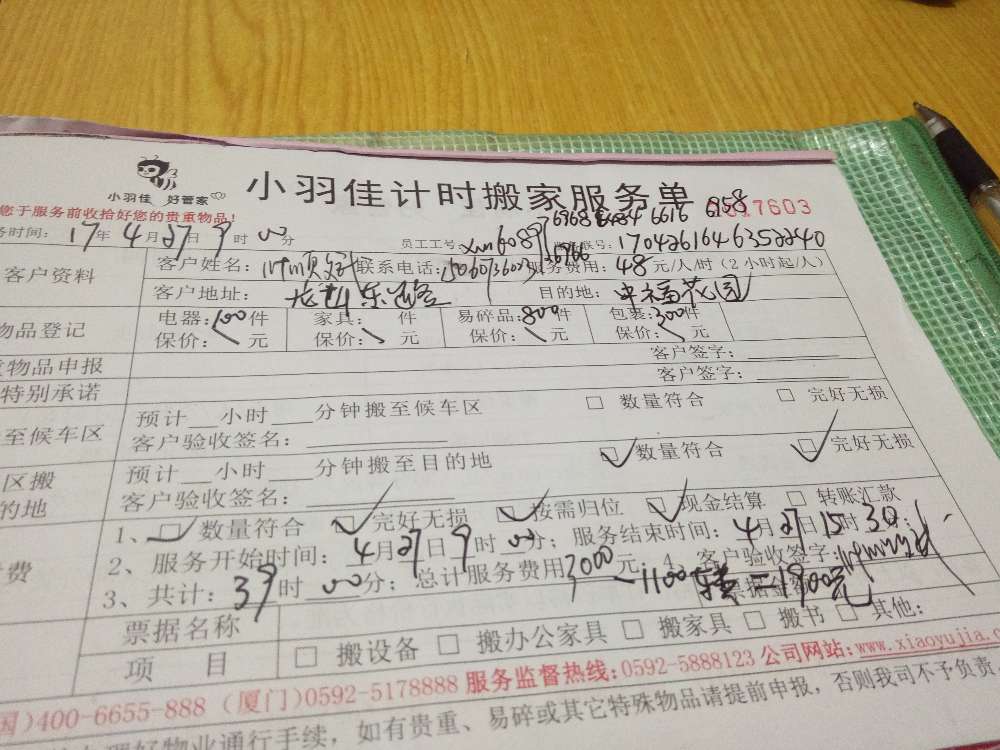 小羽佳 好管家
小羽佳计时搬家服务单
您于服务前收拾好您的贵重物品!
17603
6968 6484 6616 6158
务时间: 17年4月27日9时00分
员工工号: xm6089
联号: 1704261646352240
36766
客户资料
客户姓名:
联系电话:
服务费用: 48元/人/时(2小时起/人)
客户地址:
目的地: 幸福花园
物品登记
电器:100件 家具: 件 易碎品:800件 包裹:300件
保价: 元 保价: 元 保价: 元 保价: 元
物品申报
客户签字:
特别承诺
客户签字:
至候车区
预计__小时___分钟搬至候车区 □ 数量符合 □ 完好无损
客户验收签名:
区搬
的地
预计__小时___分钟搬至目的地 ☑ 数量符合 ☑ 完好无损
客户验收签名:
费
1、☑ 数量符合 ☑ 完好无损 ☑ 按需归位 ☑ 现金结算 □ 转账汇款
2、服务开始时间: 4月27日9时00分; 服务结束时间: 4月27日15时30;
3、共计: 39时00分; 总计服务费用3000元; 4、客户验收签字:
-1100 =1900元
票据名称
票据金额
项 目
□ 搬设备 □ 搬办公家具 □ 搬家具 □ 搬书 □ 其他:
国)400-6655-888 (厦门)0592-5178888 服务监督热线:0592-5888123 公司网站:www.xiaoyujia.c
理好物业通行手续, 如有贵重、易碎或其它特殊物品请提前申报, 否则我司不予负责